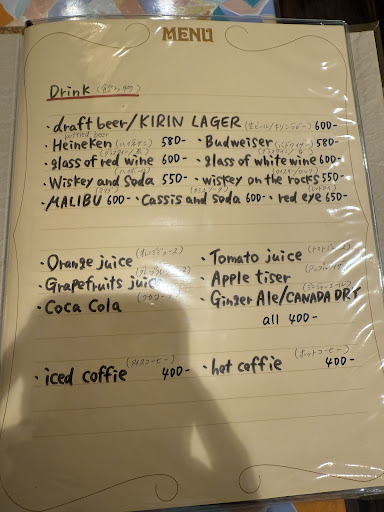 MENU
Drink
・draft beer/KIRIN LAGER (生ビール/キリンラガー) 600-
bottled beer
・Heineken (ハイネケン) 580- ・Budweiser (バドワイザー) 580-
・glass of red wine 600- ・glass of white wine 600-
・Wiskey and Soda 550- ・wiskey on the rocks 550-
・MALIBU 600- ・Cassis and soda 600- ・red eye 650-
・Orange juice (オレンジジュース) ・Tomato juice (トマトジュース)
・Grapefruits juice ・Apple tiser
・Coca Cola ・Ginger Ale/CANADA DRY
all 400-
・iced coffie (アイスコーヒー) 400- ・hot coffie (ホットコーヒー) 400-